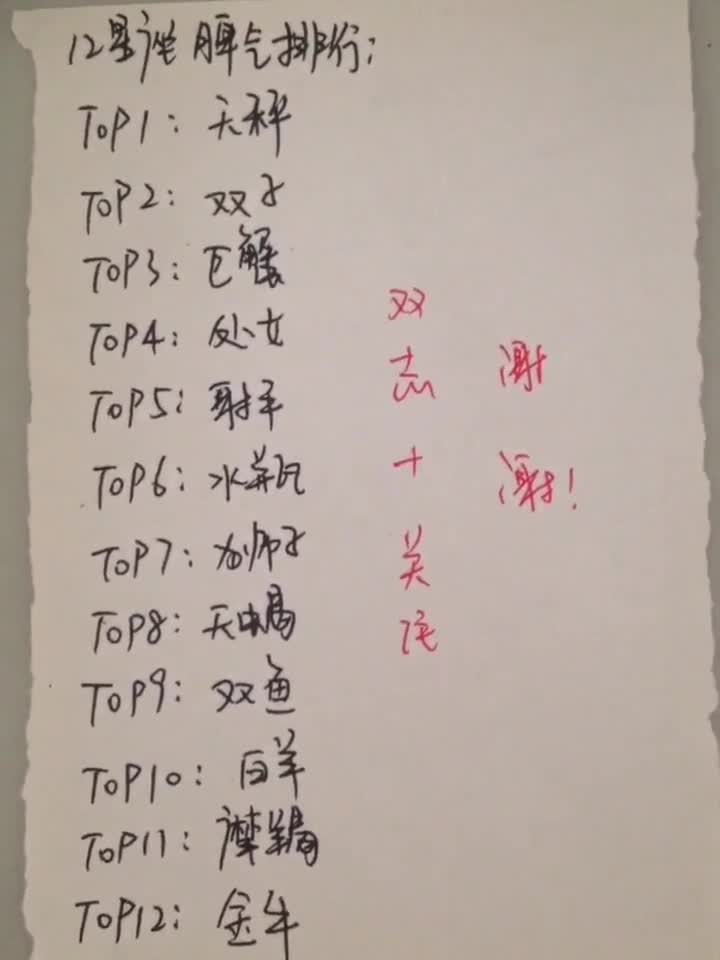 12星座脾气排行：
TOP1：天秤
TOP2：双子
TOP3：巨蟹
TOP4：处女
TOP5：射手
TOP6：水瓶
TOP7：狮子
TOP8：天蝎
TOP9：双鱼
TOP10：白羊
TOP11：摩羯
TOP12：金牛
双
击
十
关
注
谢
谢！